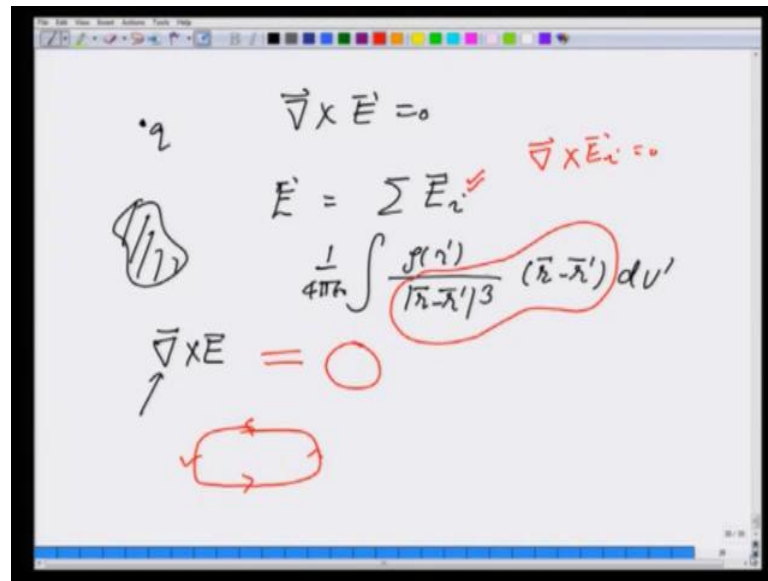 File Edit View Insert Actions Tools Help
•q
∇⃗ × E⃗ = 0
∇⃗ × E⃗i = 0
E⃗ = ∑ E⃗i
1/4πε₀ ∫ ρ(r')/|r̄-r̄'|³ (r̄-r̄') dv'
∇⃗ × E̅ = 0